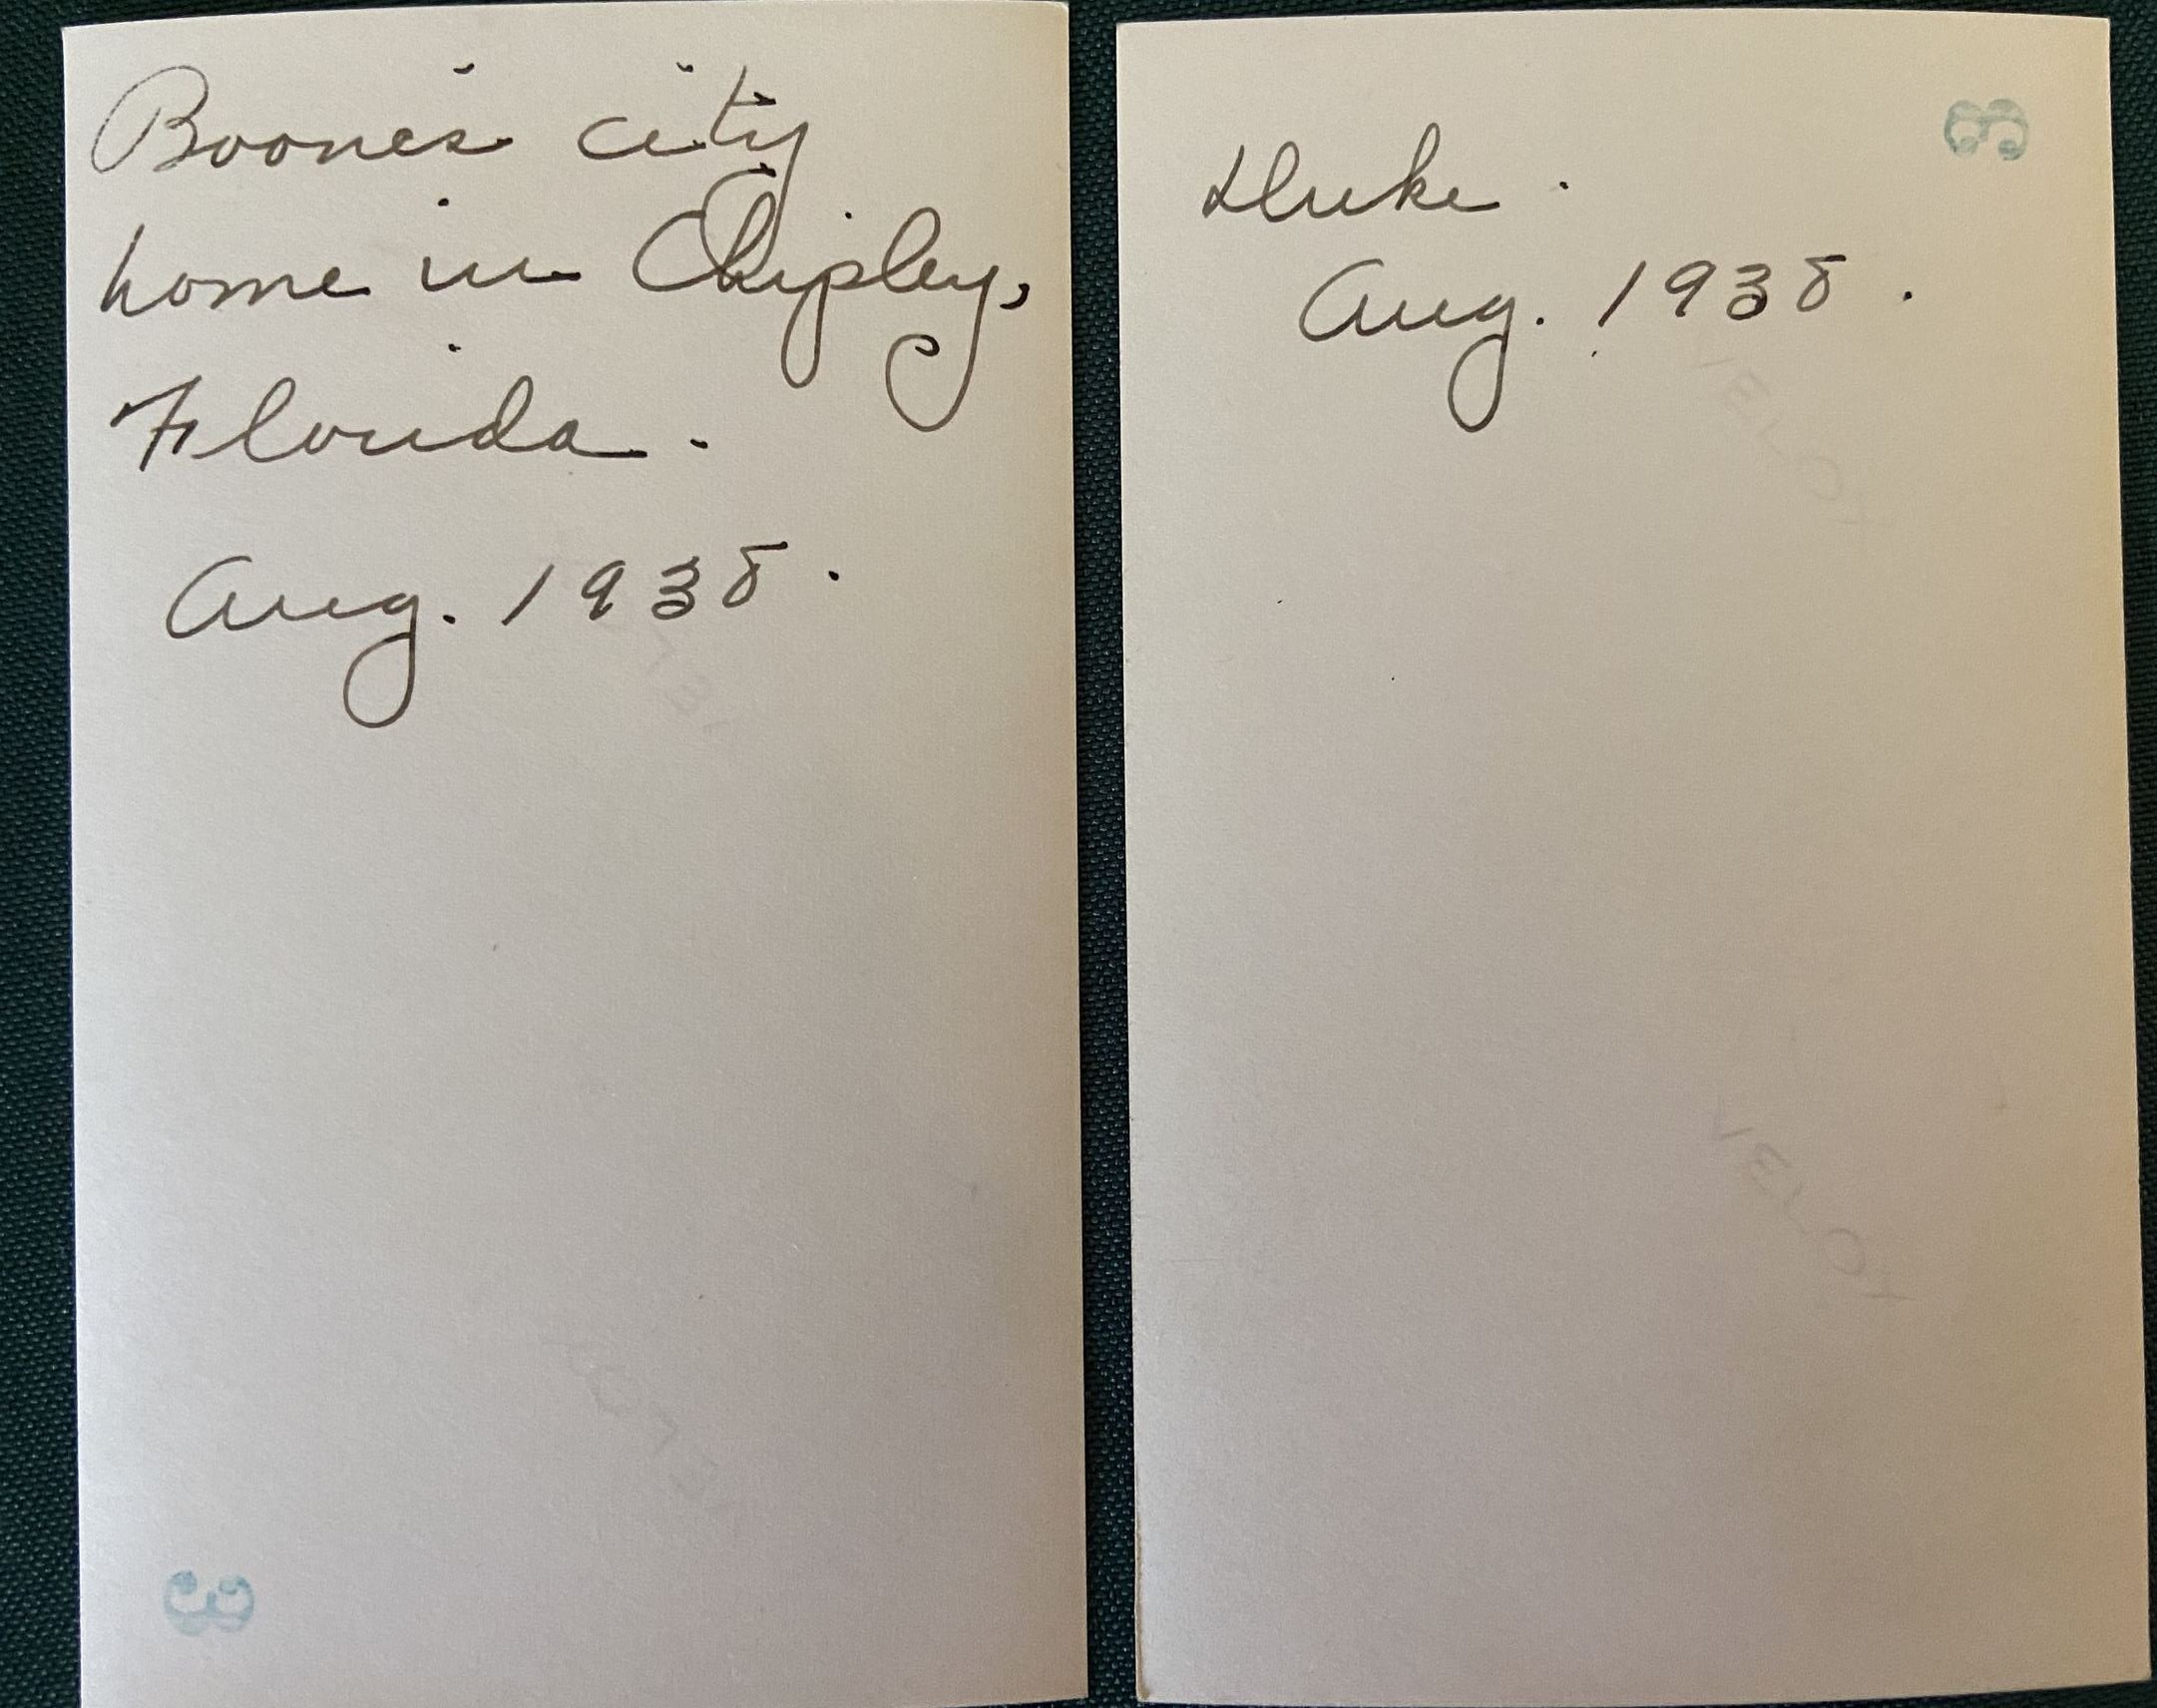 Boone's city
home in Chipley,
Florida.
Aug. 1938.
3
Duke.
Aug. 1938.
3
VELOX
VELOX